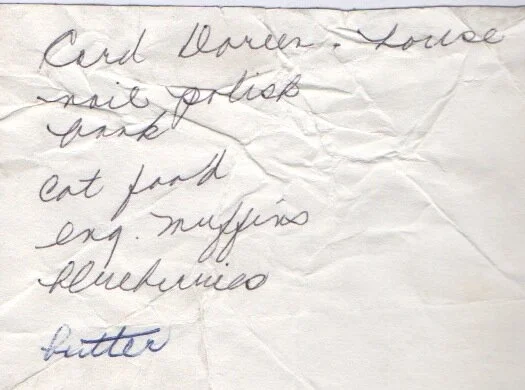 Card Doreen. house
nail polish
bank
cat food
eng. muffins
blueberries
butter